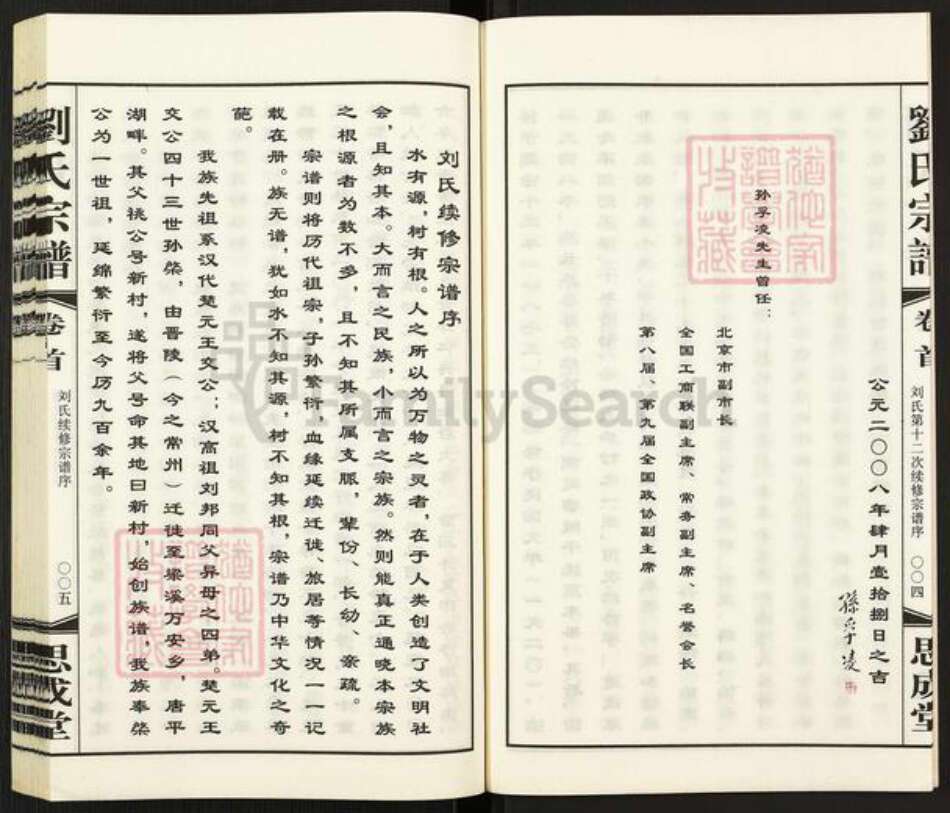 劉氏宗譜
卷首
刘氏第十二次续修宗谱序
〇〇四
思成堂
公元二〇〇八年肆月壹拾捌日之吉
孫孚凌
孙孚凌先生曾任：
北京市副市长
全国工商联副主席、常务副主席、名誉会长
第八届、第九届全国政协副主席
刘氏续修宗谱序
水有源，树有根。人之所以为万物之灵者，在于人类创造了文明社
会，且知其本。大而言之民族，小而言之宗族。然则能真正通晓本宗族
之根源者为数不多，且不知其所属支脉，辈份、长幼、亲疏。
宗谱则将历代祖宗，子孙繁衍，血缘延续迁徙、旅居等情况一一记
载在册。族无谱，犹如水不知其源，树不知其根，宗谱乃中华文化之奇
葩。
我族先祖系汉代楚元王交公；汉高祖刘邦同父异母之四弟。楚元王
交公四十三世孙棨，由晋陵（今之常州）迁徙至梁溪万安乡，唐平
湖畔。其父祧公号新村，遂将父号命其地曰新村，始创族谱，我族奉棨
公为一世祖，延绵繁衍至今历九百余年。
劉氏宗譜
卷首
刘氏续修宗谱序
〇〇五
思成堂
FamilySearch